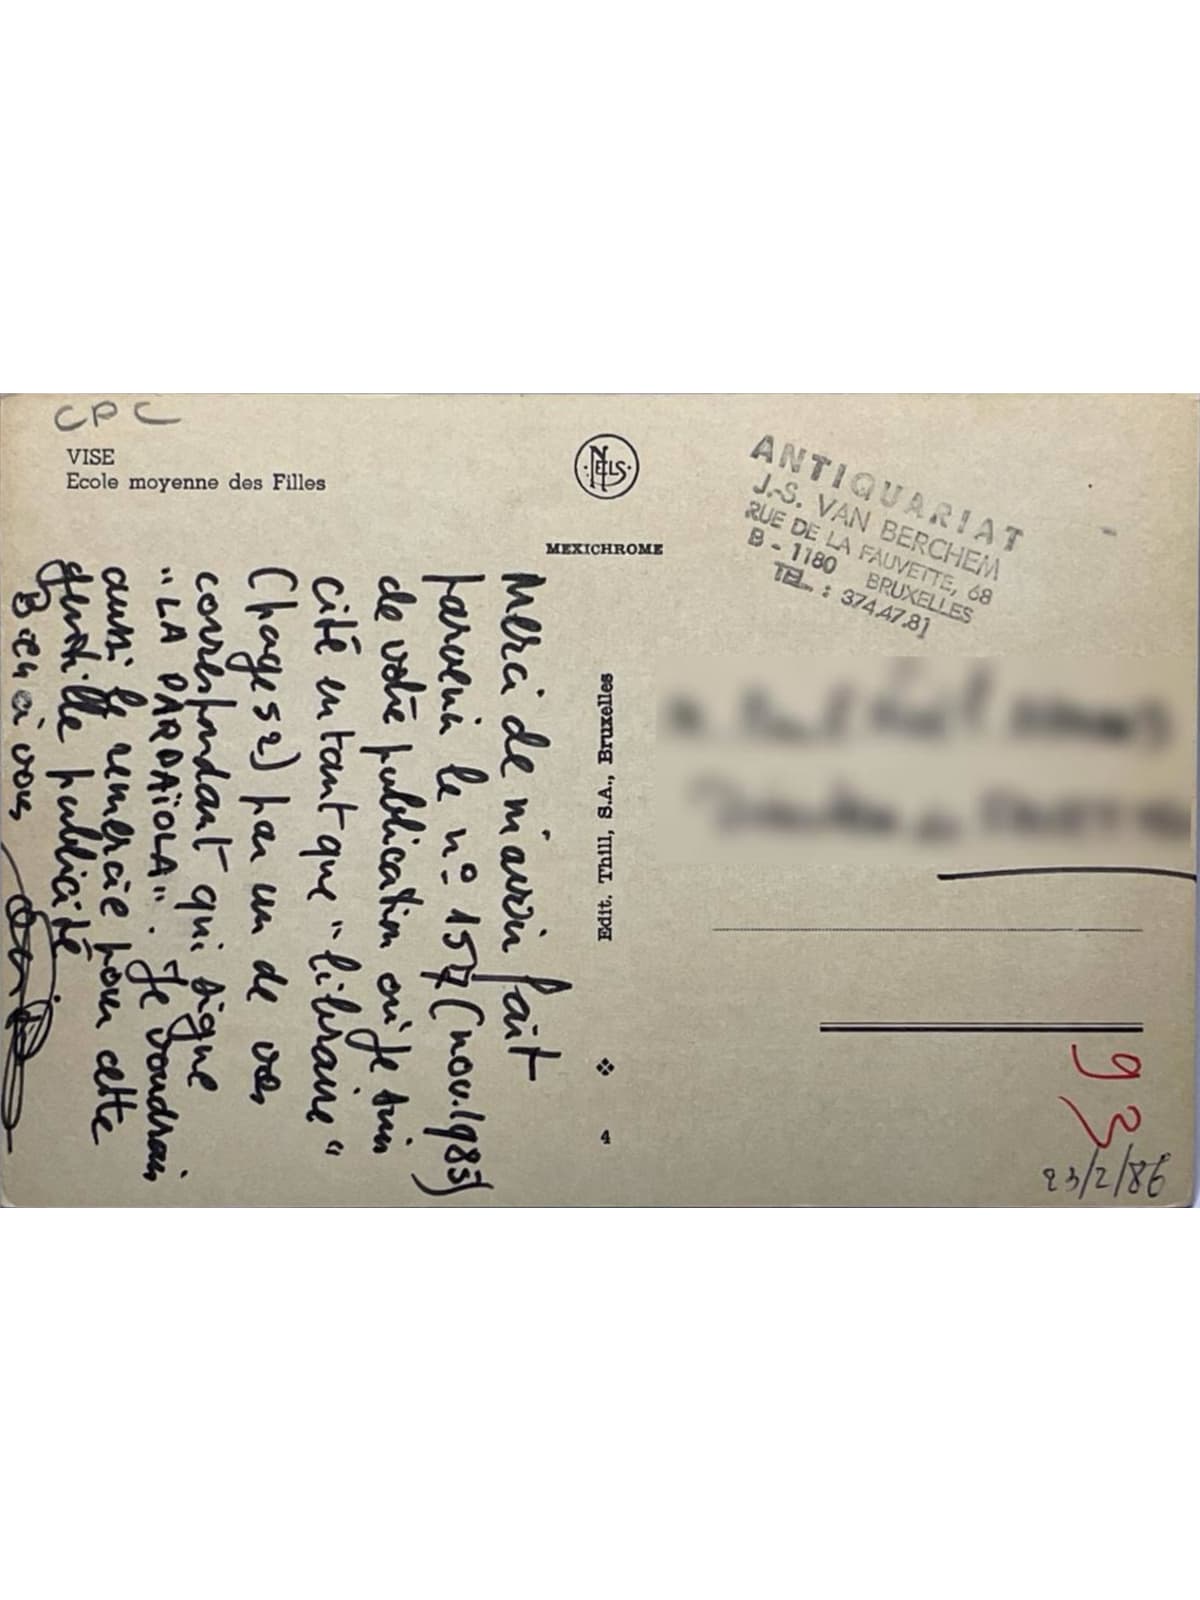 CPC
VISE
Ecole moyenne des Filles
NELS
MEXICHROME
Edit. Thill, S.A., Bruxelles
4
ANTIQUARIAT
J.-S. VAN BERCHEM
RUE DE LA FAUVETTE, 68
B - 1180 BRUXELLES
TEL. : 374.47.81
Merci de m'avoir fait
parvenir le n° 157 (nov. 1985)
de votre publication où je suis
cité en tant que "libraire"
(page 52) par un de vos
correspondant qui signe
"LA PARDAÏOLA". Je voudrais
aussi le remercie pour cette
gentille publicité
Bien à vous
93
23/2/86